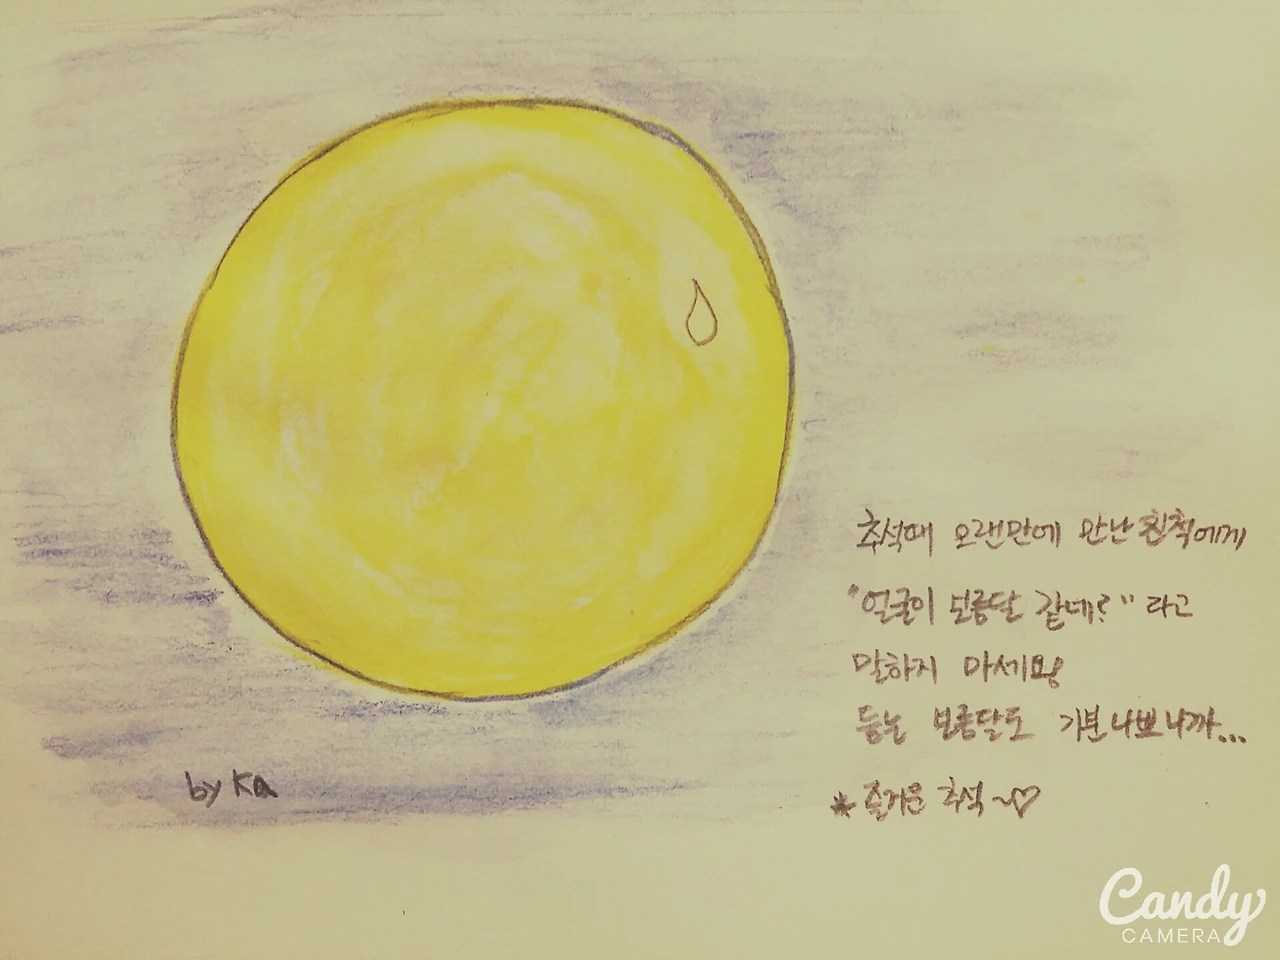 추석때 오랜만에 만난 친척에게
"얼굴이 보름달 같네?" 라고
말하지 마세요!
듣는 보름달도 기분 나쁘니까...
* 즐거운 추석~♡
by Ka
Candy
CAMERA